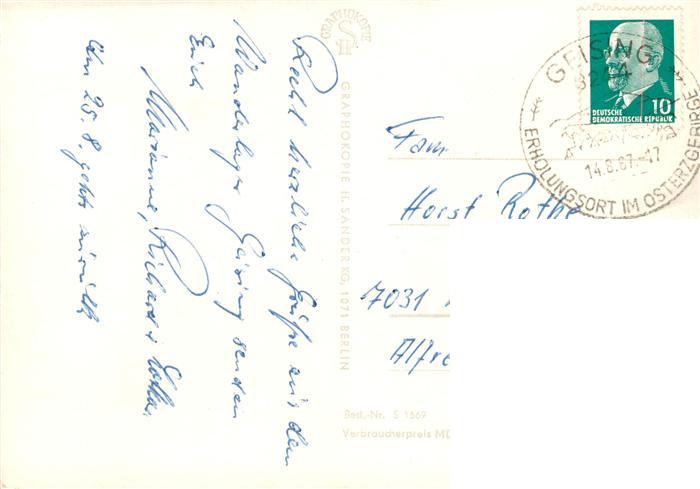 Recht herzliche Grüße aus dem
Wanderlager Geising senden
Euch
Marianne, Richard u.
Am 25.8. gehts zurück
GRAPHOKOPIE
GRAPHOKOPIE H. SANDER KG, 1071 BERLIN
GEISING
14.8.67.-17
ERHOLUNGSORT IM OSTERZGEBIRGE
10
DEUTSCHE
DEMOKRATISCHE REPUBLIK
Fam.
Horst Rothe
7031
Alfre
Best.-Nr. S 1569
Verbraucherpreis MD